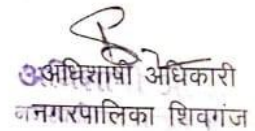 अधिशाषी अधिकारी
नगरपालिका शिवगंज